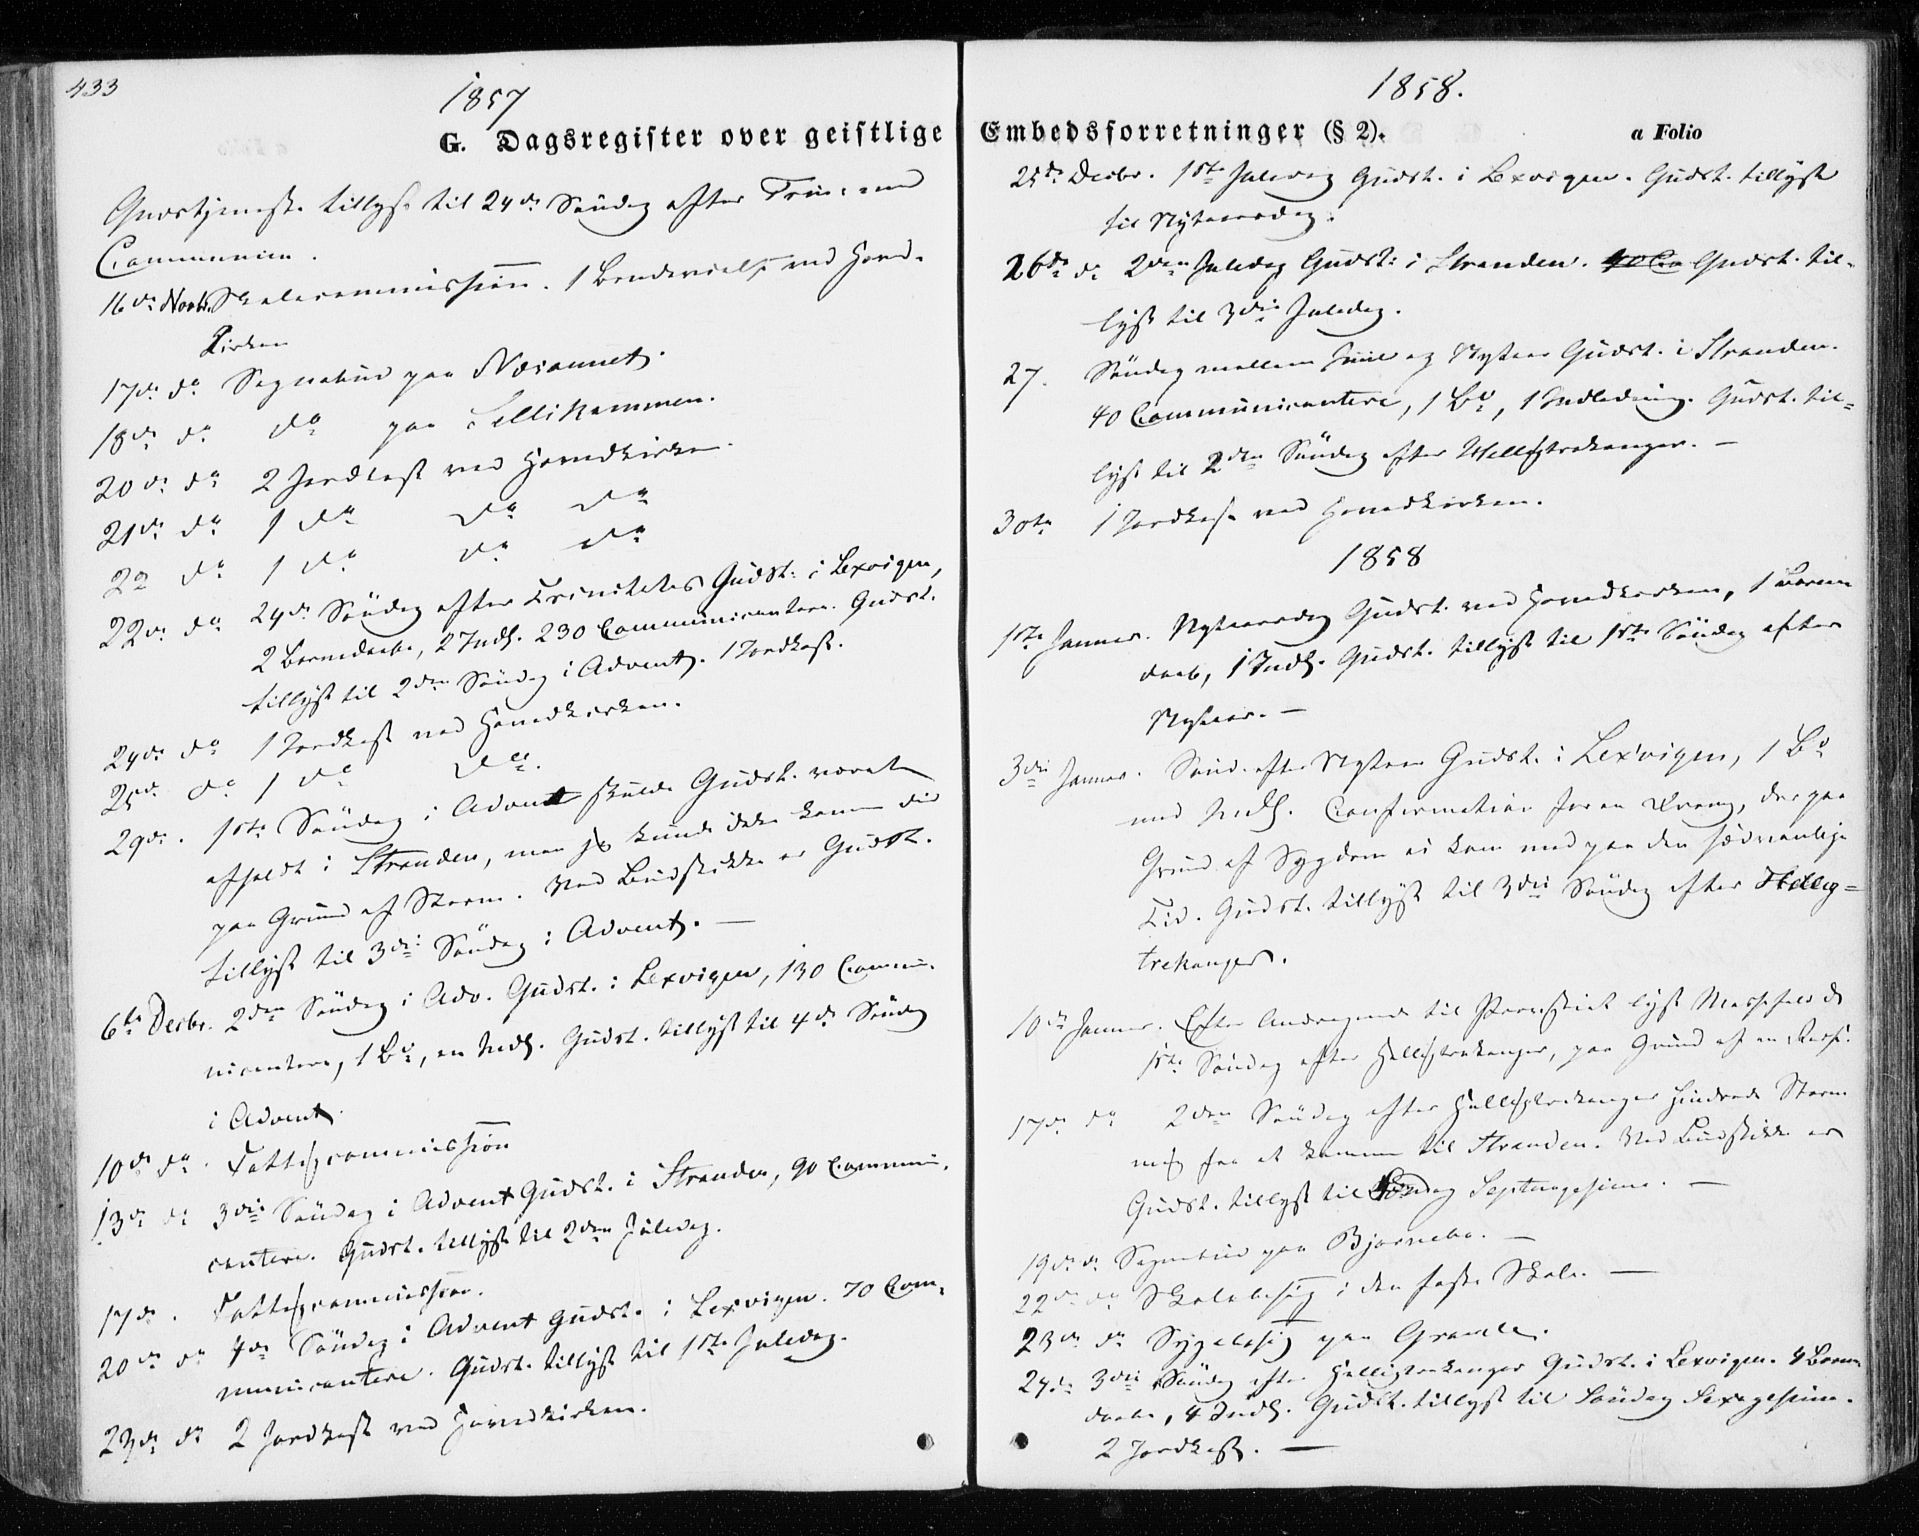 433
1857
G. Dagsregister over geistlige
Gudstjeneste tillyst til 24de Søndag efter Trin. med
Communion.
16de Novbr. Skolecommission. 1 Brudevielse ved Hoved-
kirken
17de do Sognebud paa Næsaunet.
18de do do paa Sellikammen.
20de do 2 Jordkast ved Hovedkirken.
21de do 1 do do do
22 do 1 do do do
22de do 24de Søndag efter Trinitatis Gudst. i Lexvigen,
2 Barnedaabe, 2 Indl. 230 Communicantere. Gudst.
tillyst til 2den Søndag i Advent. 1 Jordkast.
24de do 1 Jordkast ved Hovedkirken.
25de do 1 do do.
29de. 1ste Søndag i Advent skulde Gudst. været
afholdt i Stranden, men jeg kunde ikke komme did
paa Grund af Storm. Ved Budstikke er Gudst.
tillyst til 3die Søndag i Advent. —
6te Decbr. 2den Søndag i Adv. Gudst. i Lexvigen, 130 Commu-
nicantere, 1 Bd, en Indl. Gudst. tillyst til 4de Søndag
i Advent.
10de do. Fattigcommission
13de do 3die Søndag i Advent Gudst. i Stranden, 90 Communi-
cantere. Gudst. tillyst til 2den Juledag.
17de. Fattigcommission.
20de do 4de Søndag i Advent Gudst. i Lexvigen. 70 Com-
municantere. Gudst. tillyst til 1ste Juledag.
23de do 2 Jordkast ved Hovedkirken.
1858.
Embedsforretninger (§ 2).
a Folio
25de Decbr. 1ste Juledag Gudst. i Lexvigen. Gudst. tillyst
til Nytaarsdag.
26de do 2den Juledag Gudst. i Stranden. Gudst. til-
lyst til 3die Juledag.
27. Søndag mellem Juul og Nytaar Gudst. i Stranden.
40 Communicantere, 1 Bd, 1 Indledning. Gudst. til-
lyst til 2den Søndag efter Helligtrekonger. —
30te 1 Jordkast ved Hovedkirken.
1858
1ste Januar. Nytaarsdag Gudst. ved Hovedkirken, 1 Barne
daab, 1 Indl. Gudst. tillyst til 1ste Søndag efter
Nytaar. —
3die Januar. Sønd. efter Nytaar Gudst. i Lexvigen, 1 Bd
med Indl. Confirmation for en Dreng, der paa
Grund af Sygdom ei kom med paa den sædvanlige
Tid. Gudst. tillyst til 3die Søndag efter Hellig-
trekonger.
10de Januar. Efter Andragende til Provstiet lyst Messefald
1ste Søndag efter Helligtrekonger, paa Grund af en
17de do 2den Søndag efter Helligtrekonger hindrede Storm
mig fra at komme til Stranden. Ved Budstikke er
Gudst. tillyst til Søndag Septuagesima. —
19de do Sognebud paa Bjørnebo. —
22de do Skolebesøg i den faste Skole. —
23de do Sygebesøg paa Grande.
24de 3die Søndag efter Helligtrekonger Gudst. i Lexvigen. 4 Barne
daabe, 4 Indl. Gudst. tillyst til Søndag Sexagesima.
2 Jordkast. —